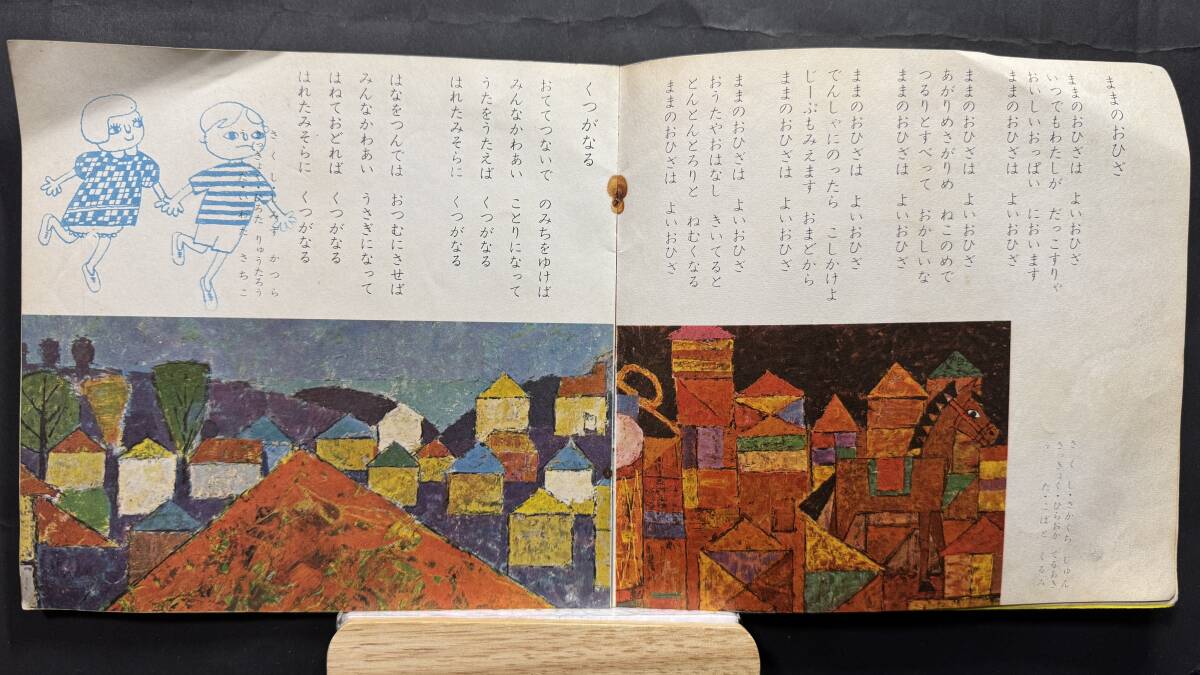 ままのおひざ
ままのおひざは よいおひざ
いつでもわたしが だっこすりゃ
おいしいおっぱい においます
ままのおひざは よいおひざ
ままのおひざは よいおひざ
あがりめさがりめ ねこのめで
つるりとすべって おかしいな
ままのおひざは よいおひざ
ままのおひざは よいおひざ
でんしゃにのったら こしかけよ
じーぷもみえます おまどから
ままのおひざは よいおひざ
ままのおひざは よいおひざ
おうたやおはなし きいてると
とんとんとろりと ねむくなる
ままのおひざは よいおひざ
さくし・さかぐち じゅん
さっきょく・ひらおか てるあき
うた・こばと くるみ
くつがなる
おててつないで のみちをゆけば
みんなかわあい ことりになって
うたをうたえば くつがなる
はれたみそらに くつがなる
はなをつんでは おつむにさせば
みんなかわあい うさぎになって
はねておどれば くつがなる
はれたみそらに くつがなる
さくし かつら
りゅうたろう
さちこ